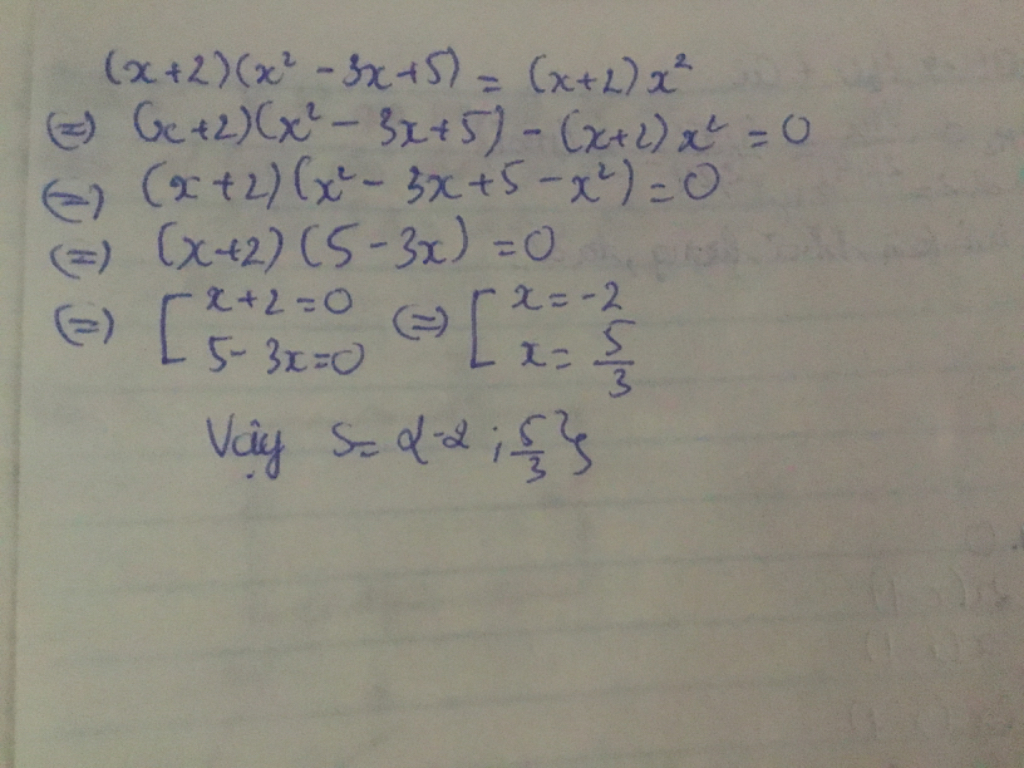 (x+2)(x² - 3x+5) = (x+2)x²
(=) (x+2)(x² - 3x+5) - (x+2)x² = 0
(=) (x+2)(x² - 3x+5 - x²) = 0
(=) (x+2)(5-3x) = 0
(=) [ x+2=0 (=) [ x=-2
5-3x=0 x= 5/3
Vậy S= {-2 ; 5/3}